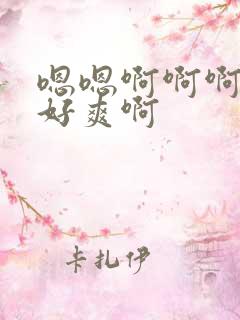 嗯嗯啊啊啊
好爽啊
卡扎伊